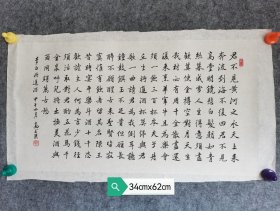 君不見黃河之水天上來
奔流到海不復回君不見
高堂明鏡悲白髮朝如青
絲暮成雪人生得意須盡
歡莫使金樽空對月天生
我材必有用千金散盡還
復來烹羊宰牛且為樂會
須一飲三百杯岑夫子丹
丘生將進酒杯莫停與君
歌一曲請君為我傾耳聽
鐘鼓饌玉不足貴但願長
醉不願醒古來聖賢皆寂
寞惟有飲者留其名陳王
昔時宴平樂斗酒十千恣
歡謔主人何為言少錢徑
須沽取對君酌五花馬千
金裘呼兒將出換美酒與
爾同銷萬古愁
李白將進酒
34cmx62cm